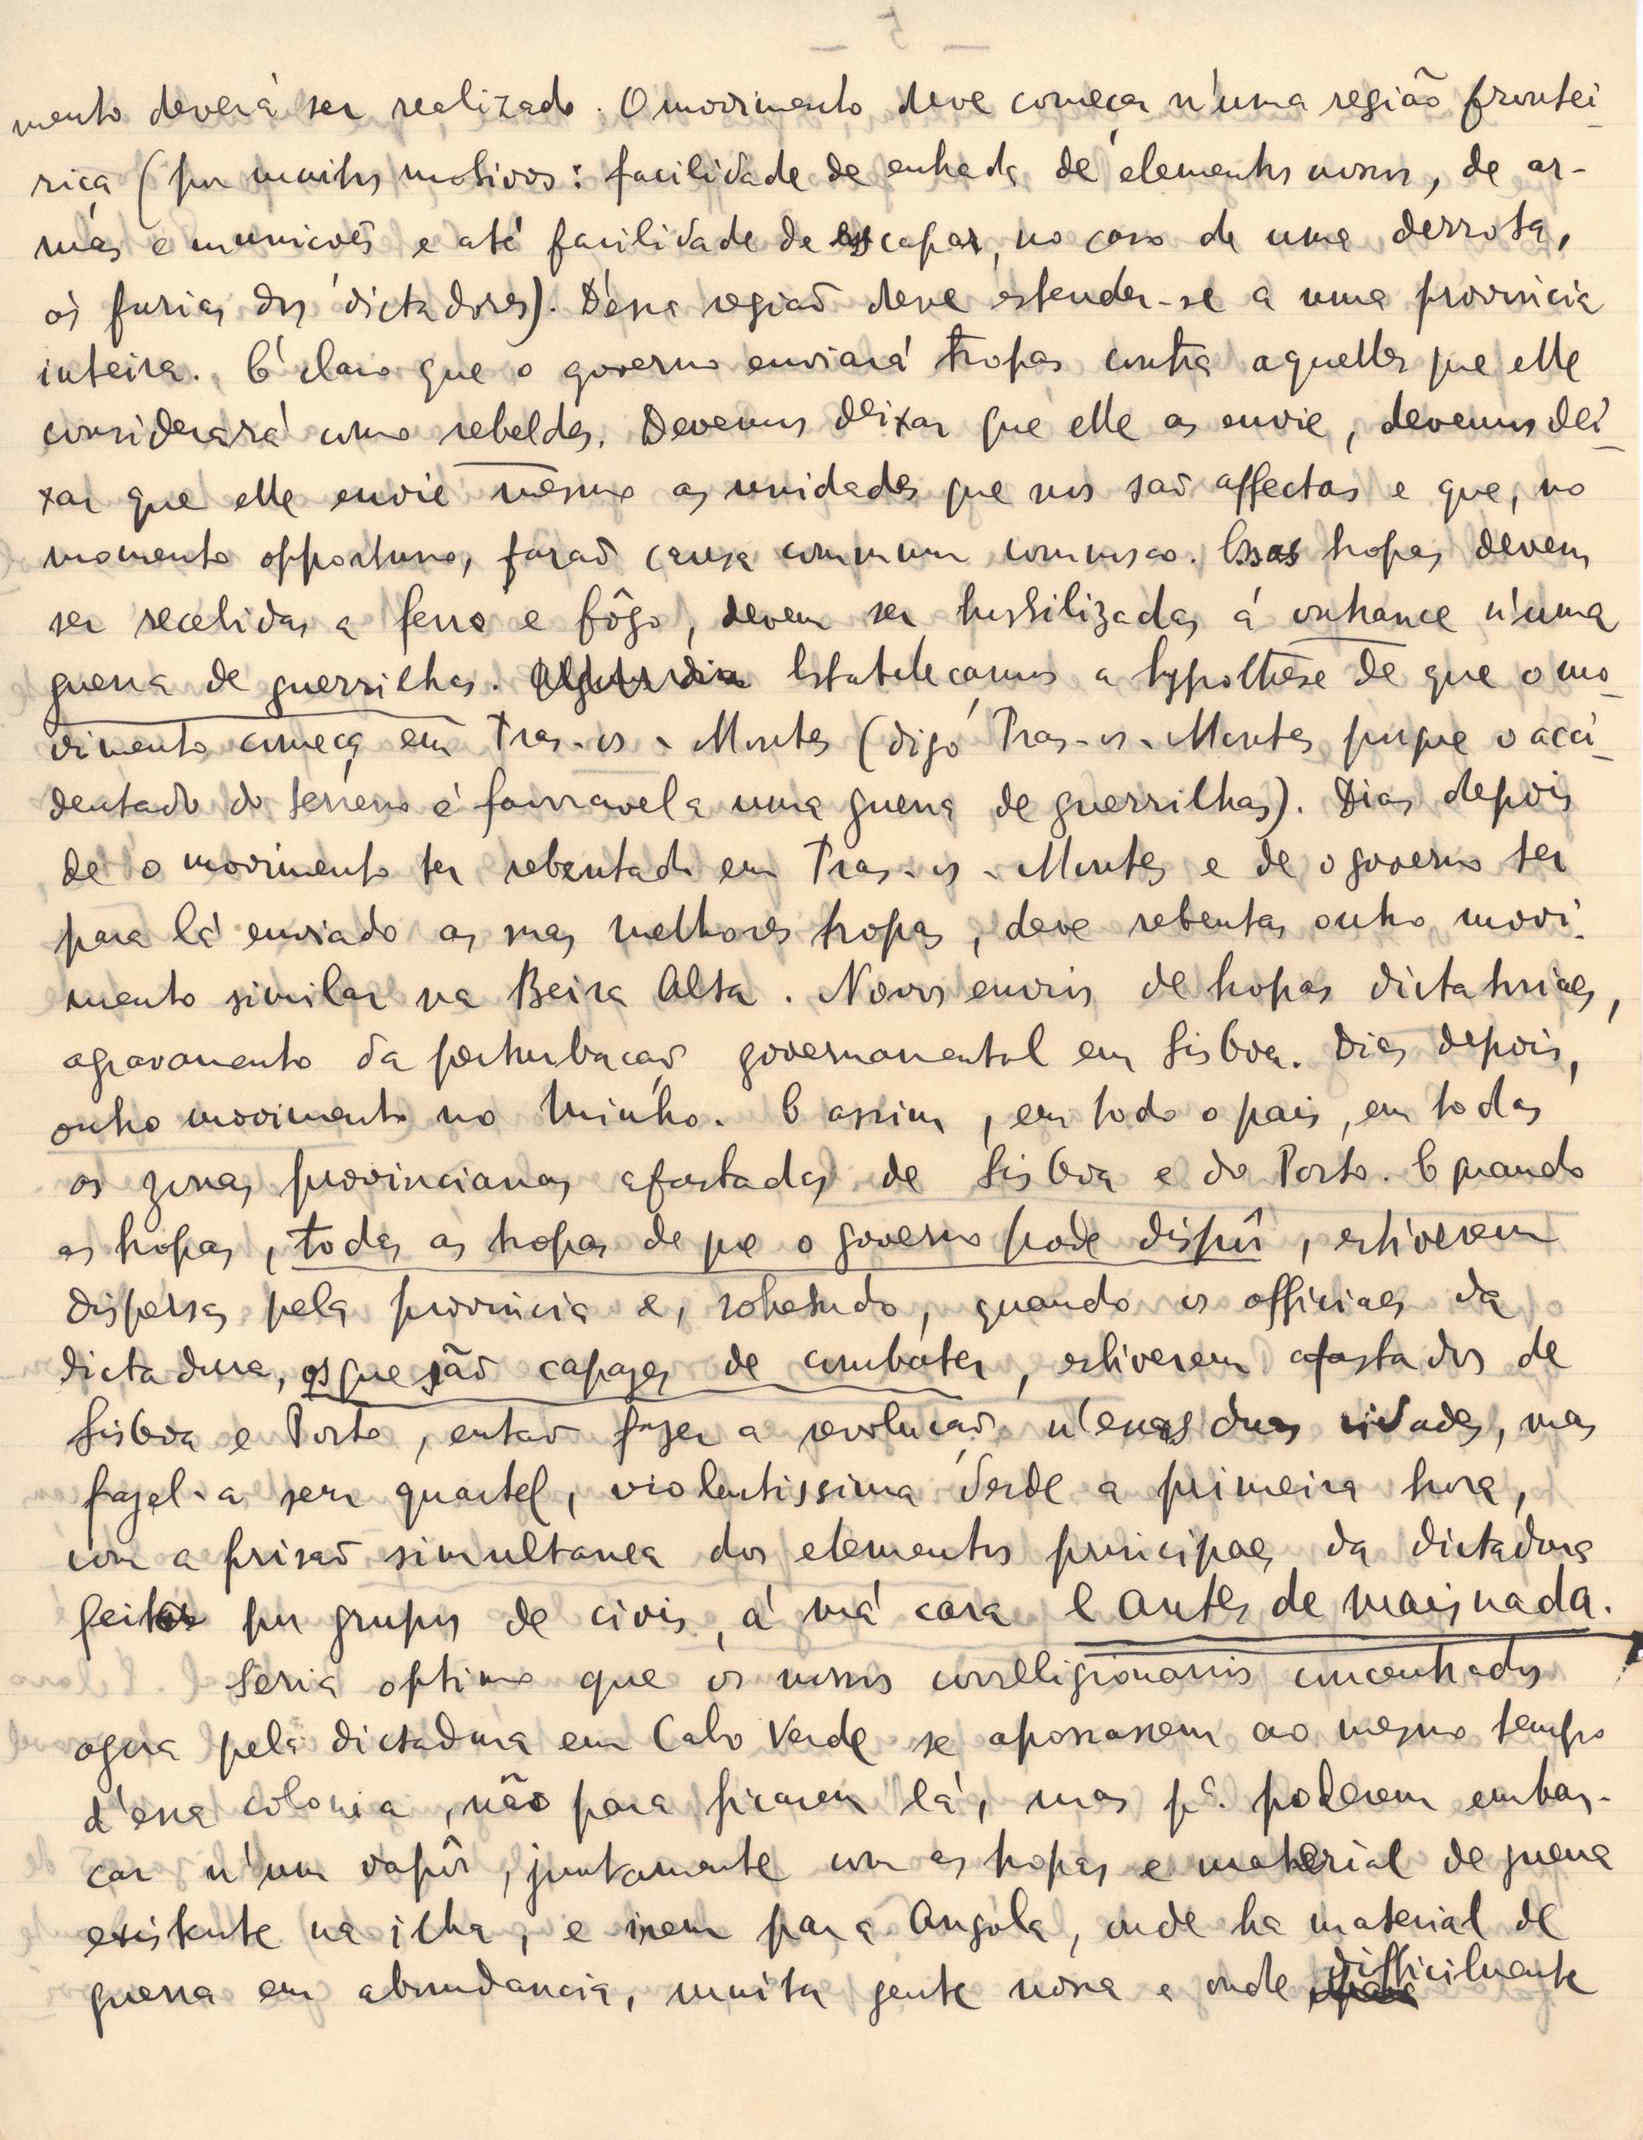 mento deverá ser realizado. O movimento deve começar n'uma região frontei-
riça (por muitos motivos: facilidade de entrada de elementos nossos, de ar-
mas e munições e até facilidade de escapar, no caso de uma derrota,
ás furias dos dictadores). D'essa região deve estender-se a uma provincia
inteira. É claro que o governo enviará tropas contra aquelles que elle
considerará como rebeldes. Devemos deixar que elle as envie, devemos dei-
xar que elle envie mesmo as unidades que nos são affectas e que, no
momento opportuno, farão causa commum comnosco. Essas tropas devem
ser recebidas a ferro e fôgo, devem ser hostilizadas á outrance n'uma
guerra de guerrilhas. Estabeleçamos a hypothese de que o mo-
vimento começa em Tras-os-Montes (digo Tras-os-Montes porque o acci-
dentado do terreno é favoravel a uma guerra de guerrilhas). Dias depois
de o movimento ter rebentado em Tras-os-Montes e de o governo ter
para lá enviado as suas melhores tropas, deve rebentar outro movi-
mento similar na Beira Alta. Novos envios de tropas dictatoriaes,
agravamento da perturbação governamental em Lisboa. Dias depois,
outro movimento no Minho. E assim, em todo o pais, em todas
as zonas provincianas afastadas de Lisboa e do Porto. E quando
as tropas, todas as tropas de que o governo pode dispôr, estiverem
dispersas pela provincia e, sobretudo, quando os officiaes da
dictadura, os que são capazes de combater, estiverem afastados de
Lisboa e Porto, então fazer a revolução n'essas duas cidades, mas
fazel-a sem quartel, violentissima desde a primeira hora,
com a prisão simultanea dos elementos principaes da dictadura
feita por grupos de civis, á má cara e antes de mais nada.
Seria optimo que os nossos correligionarios concentrados
agora pela dictadura em Cabo Verde se apossassem ao mesmo tempo
d'essa colonia, não para ficarem lá, mas pª. poderem embar-
car n'um vapôr, juntamente com as tropas e material de guerra
existente na ilha, e irem para Angola, onde ha material de
guerra em abundancia, muita gente nossa e onde difficilmente